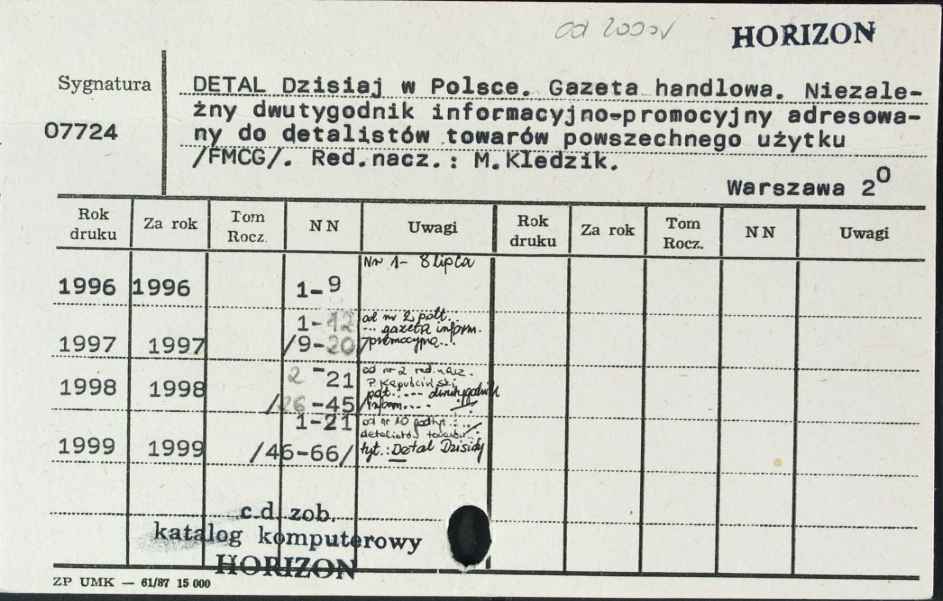 od 2000r
HORIZON
Sygnatura
07724
DETAL Dzisiaj w Polsce. Gazeta handlowa. Niezale-
żny dwutygodnik informacyjno-promocyjny adresowa-
ny do detalistów towarów powszechnego użytku
/FMCG/. Red.nacz.: M.Kledzik.
Warszawa 2⁰
Rok druku Za rok Tom Rocz. NN Uwagi Rok druku Za rok Tom Rocz. NN Uwagi
Nr 1- 8 lipca
1996 1996 1-9
1-12 od nr 2 podt.
... gazeta inform.
1997 1997 /9-20/ promocyjna...
od nr 2 red. nacz.
1998 1998 2-21 P. Kapuściński
pdt.: ... dwutygodnik
/26-45/ inform....
1-21 od nr 10 podtyt.: ...
detalistów towarów
1999 1999 /46-66/ tyt.: Detal Dzisiaj
c.d. zob.
katalog komputerowy
HORIZON
ZP UMK — 61/87 15 000